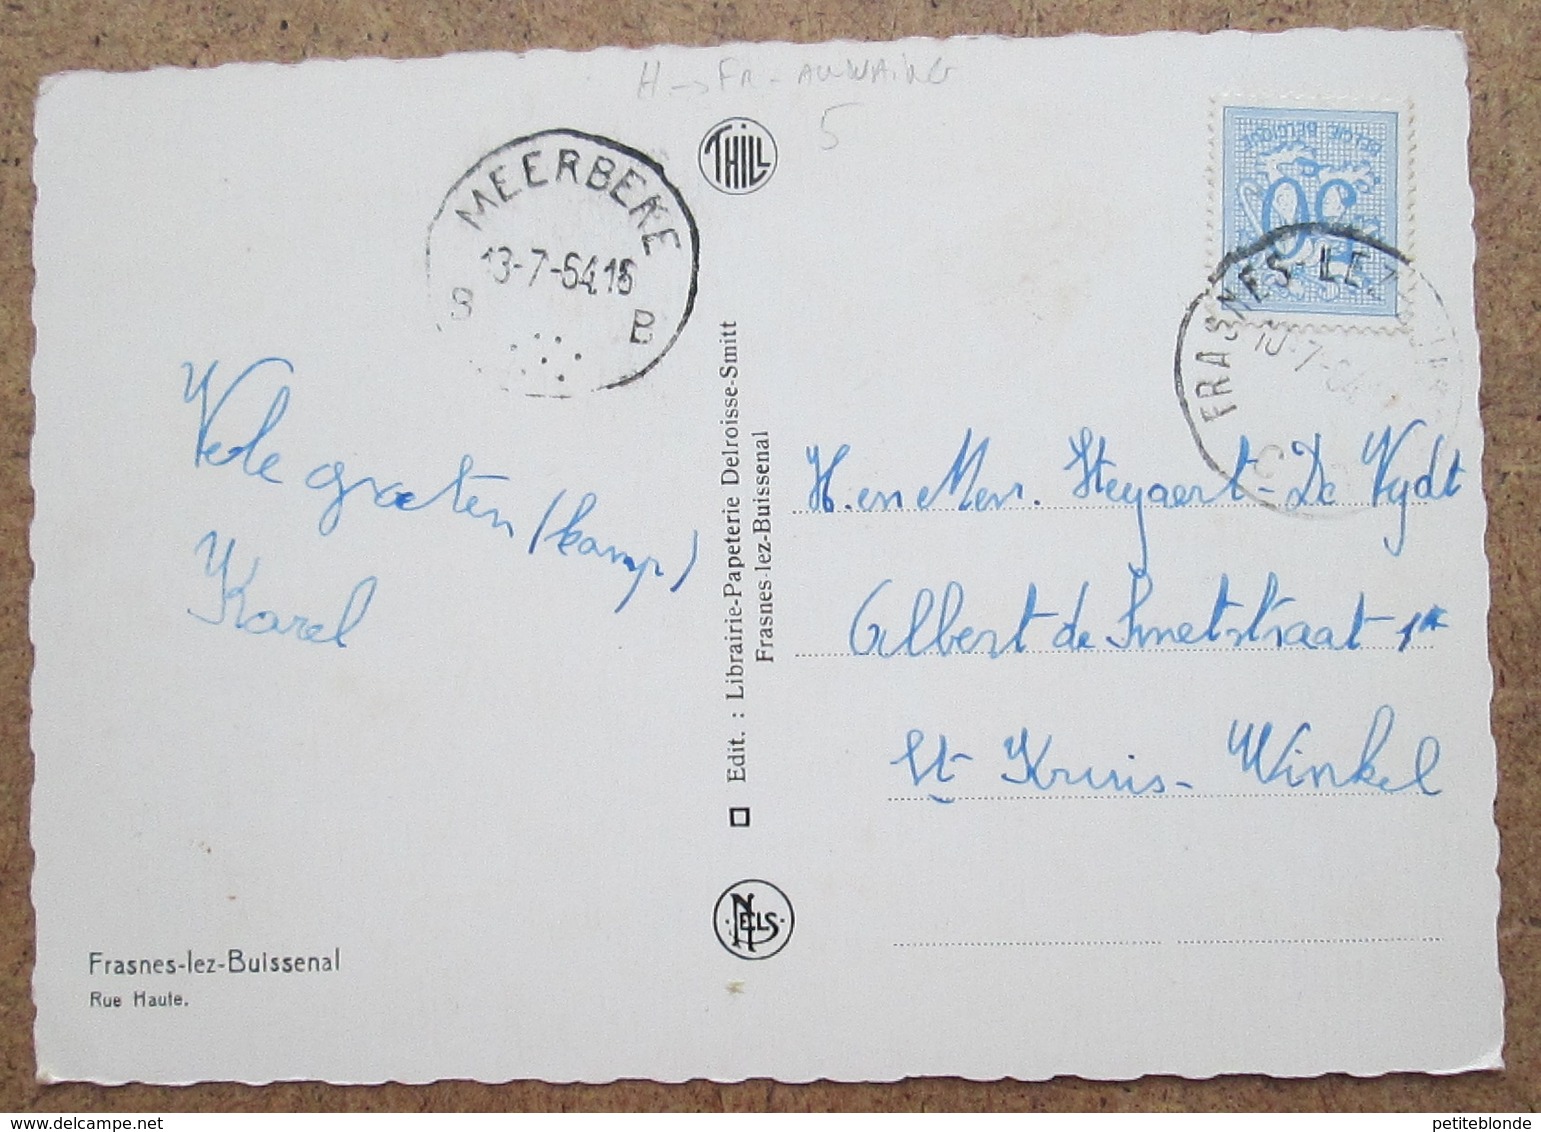 H → FR-
5
MEERBEKE
13-7-64 16
B B
THILL
BELGIE BELGIQUE
50
FRASNES-LEZ
Vele groeten (kamp)
Karel
Edit. : Librairie-Papeterie Delroisse-Smitt
Frasnes-lez-Buissenal
H. en Mevr. Heyaert - De Vydt
Albert de Smetstraat 1
St Kruis - Winkel
NELS
Frasnes-lez-Buissenal
Rue Haute.
petiteblonde